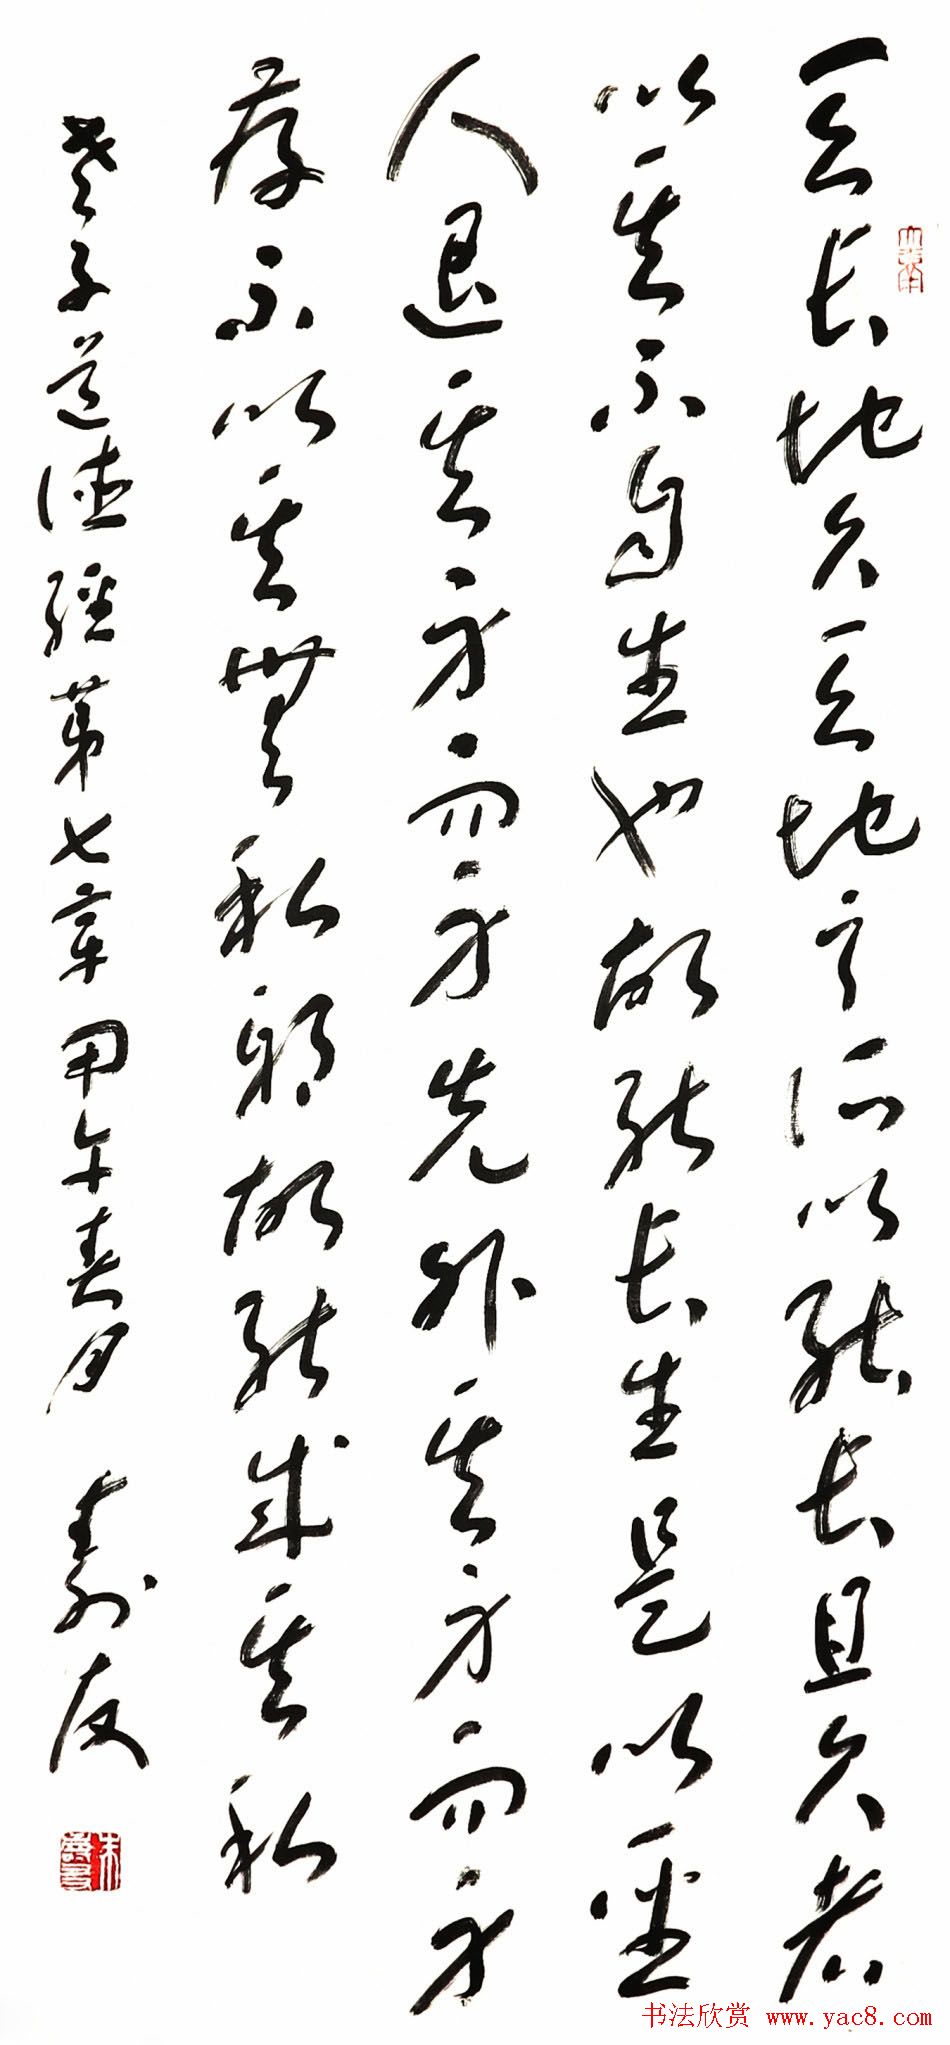 天長地久天地之所以能長且久者
以其不自生也故能長生是以聖
人退其身而身先外其身而身
存不以其無私邪故能成其私
老子道德經第七章甲午春月 壽友
朱壽友
书法欣赏 www.yac8.com